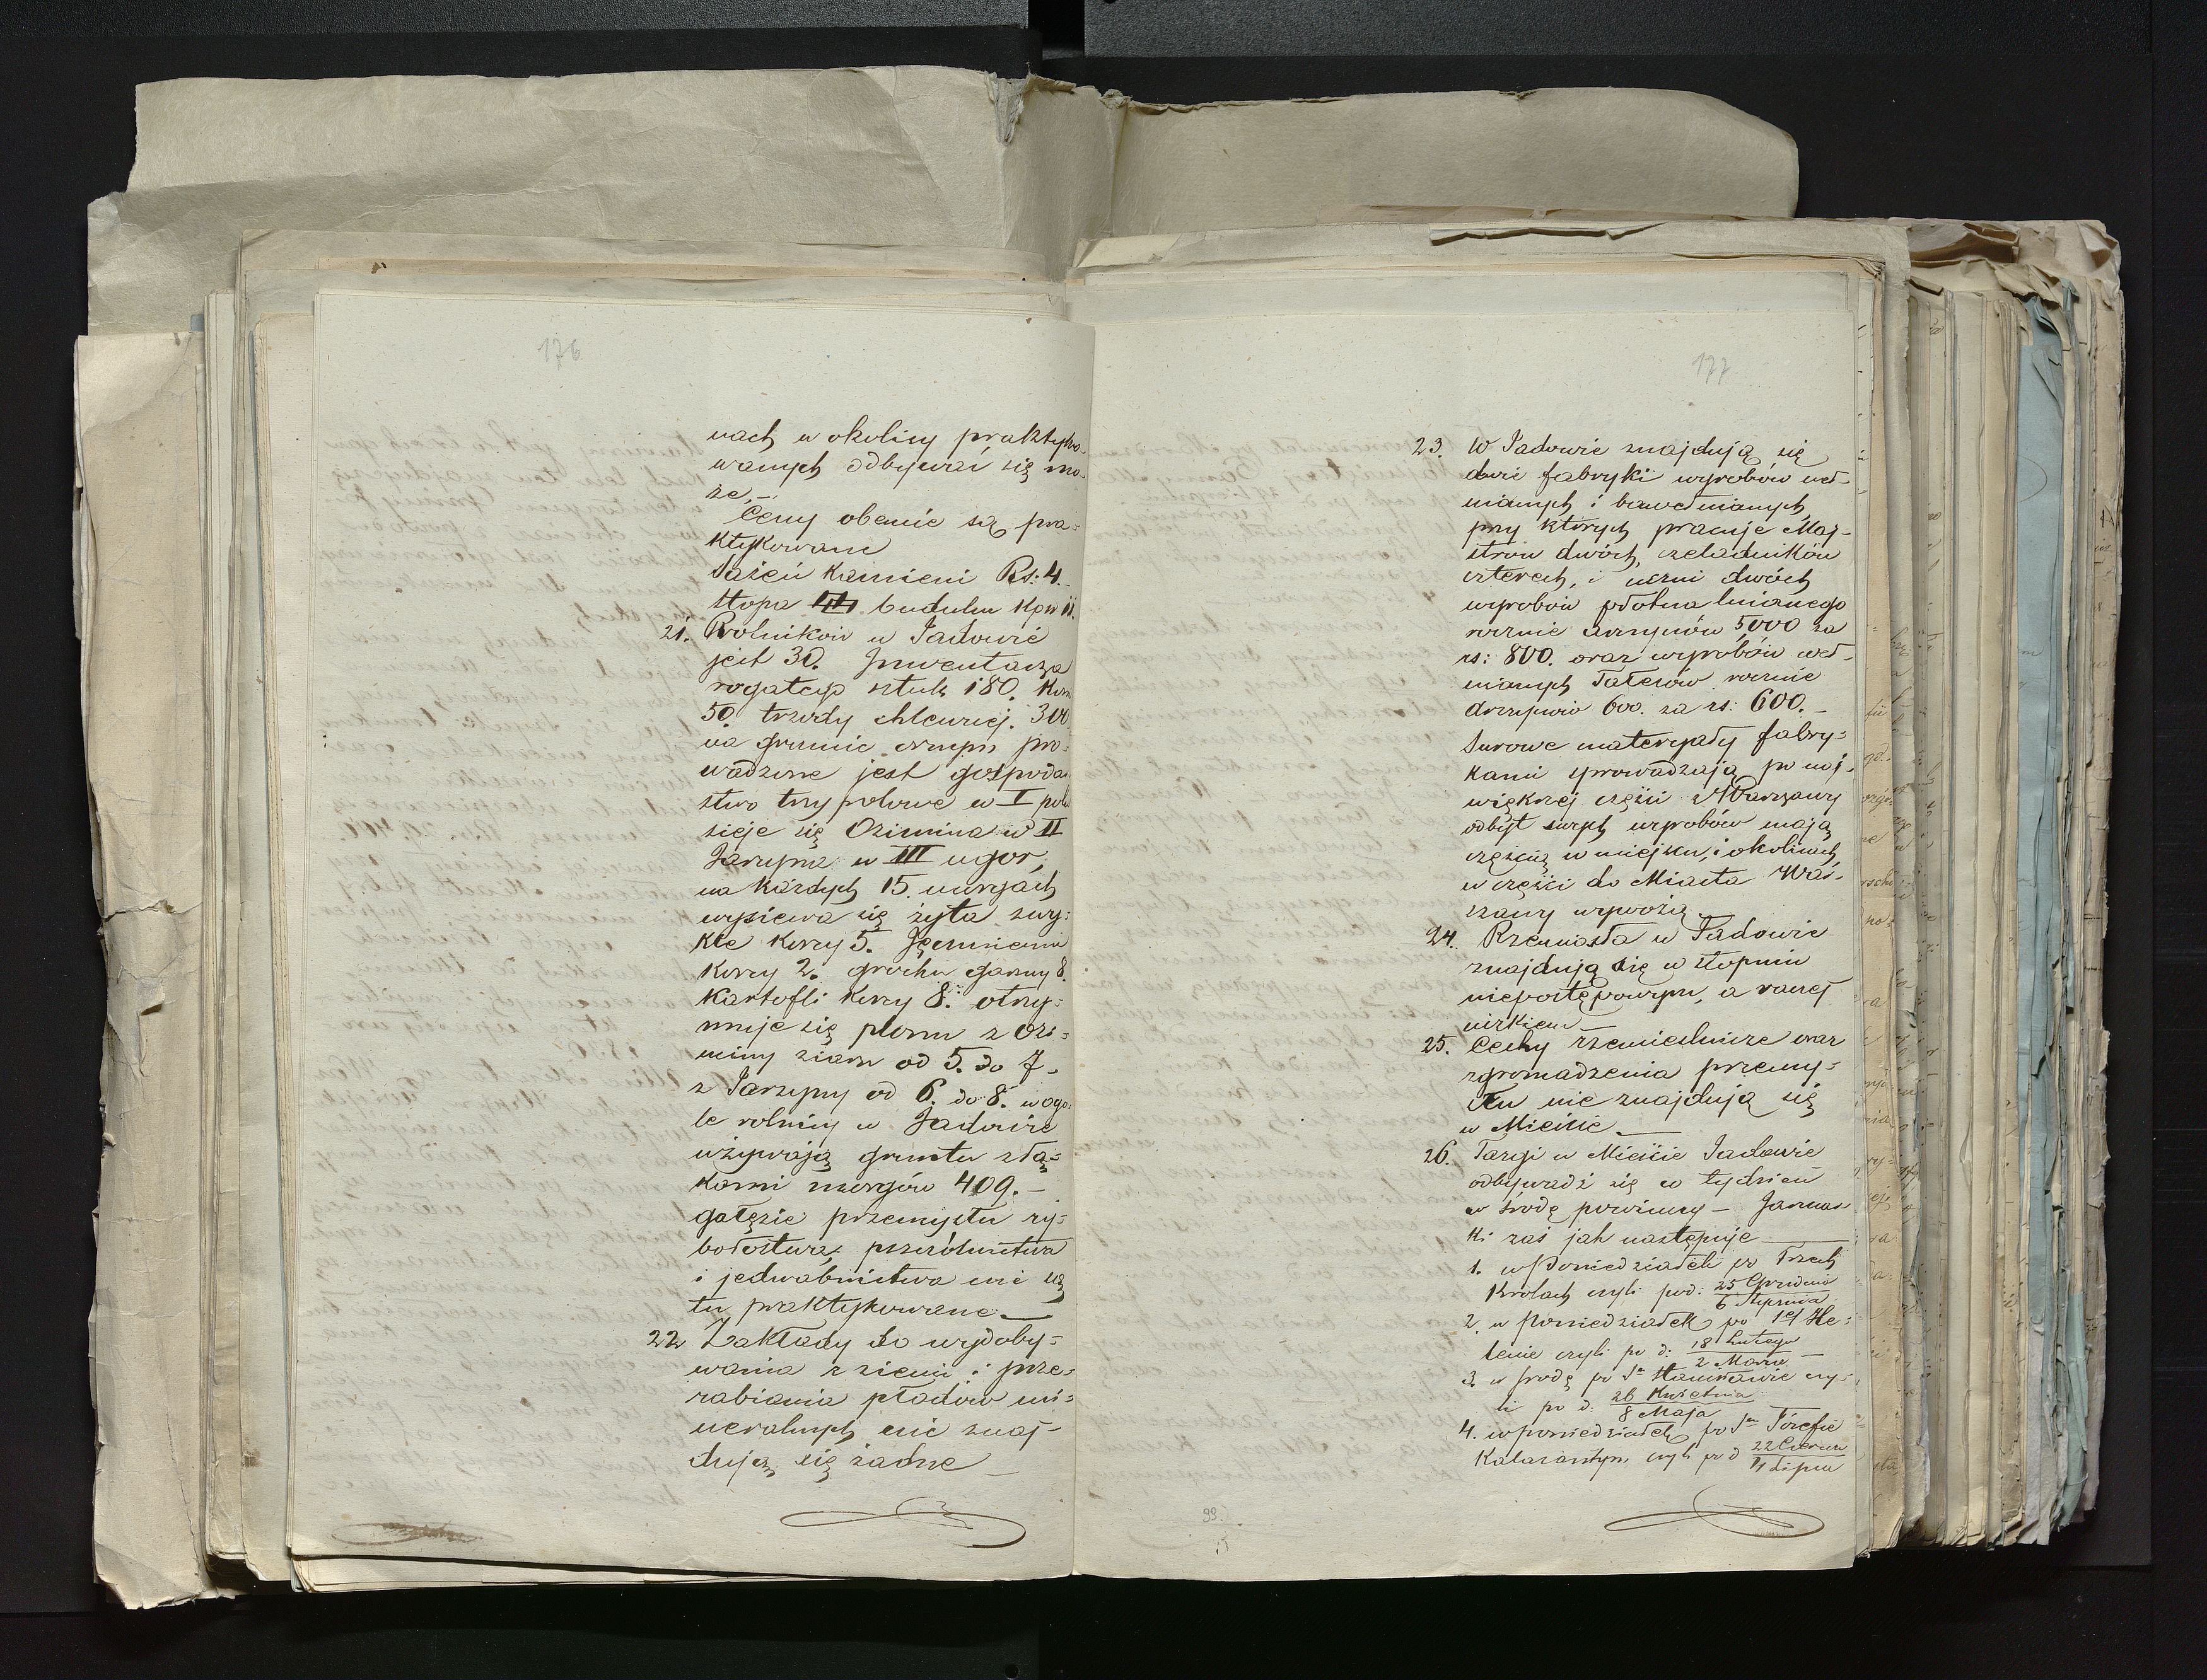 176
nach w okolicy praktyko-
wanych odbywać się mo-
że.-
Ceny obecnie są pra-
ktykowane
Sążeń Kamieni Rs: 4.-
Stopa budulcu Kpw
21. Rolników w Jadowie
jest 30. Inwentarza
rogatego sztuk 180. Koni
50. trzody chlewnej. 300
na gruncie ornym pro-
wadzone jest gospodar
stwo trzypolowe w I polu
sieje się Ozimina w II
Jarzyna w III ugor,
na każdych 15. morgach
wysiewa się żyta zwy-
kle korcy 5. Jęczmieniu
korcy 2. grochu garncy 8.
Kartofli korcy 8. otrzy-
muje się plonu z Ozi-
miny ziarn od 5. do 7.
z Jarzyny od 6. do 8. w ogo-
le rolnicy w Jadowie
używają gruntu z łą-
kami morgów 409.-
gałęzie przemysłu ry-
bołostwa, pszczolnictwa
i jedwabnictwa nie są
tu praktykowane.-
22 Zakłady do wydoby-
wania z ziemi i prze-
rabiania płodów mi-
neralnych nie znaj-
dują się żadne -
177
23. W Jadowie znajdują się
dwie fabryki wyrobów weł-
nianych i bawełnianych,
przy których pracuje Maj-
strow dwóch, czeladników
czterech, i uczni dwóch
wyrobow płotna lnianego
rocznie arszynów 5000 za
rs: 800. oraz wyrobów weł-
nianych Tałesów rocznie
arszynow 600. za rs: 600.-
Surowe materyały fabry-
kanci sprowadzają po naj-
większej części z Warszawy
odbyt swych wyrobów mają
częścią w miejscu, i okolicach,
w części do Miasta War-
szawy wywożą.
24. Rzemiosła w Jadowie
znajdują się w stopniu
niepostępowym, a raczej
nizkiem -
25. Cechy rzemieślnicze oraz
zgromadzenia przemy-
słu nie znajdują się
w Mieście -
26. Targi w Mieście Jadowie
odbywać się w tydzień
w środę powinny - Jarmar
ki zaś jak następuje
1. w Poniedziałek po Trzech
Krolach czyli po d: 25 Grudnia
6 Stycznia
2. w poniedziałek po He-
lenie czyli po d: 18 Lutego
2 Marca -
3. w środę po Sm Stanisławie czy-
li po d: 26 Kwietnia
8 Maja
4. w poniedziałek po Sm Józefie
Kalasantym czyli po d 22 Czerwca
4 Lipca
99.